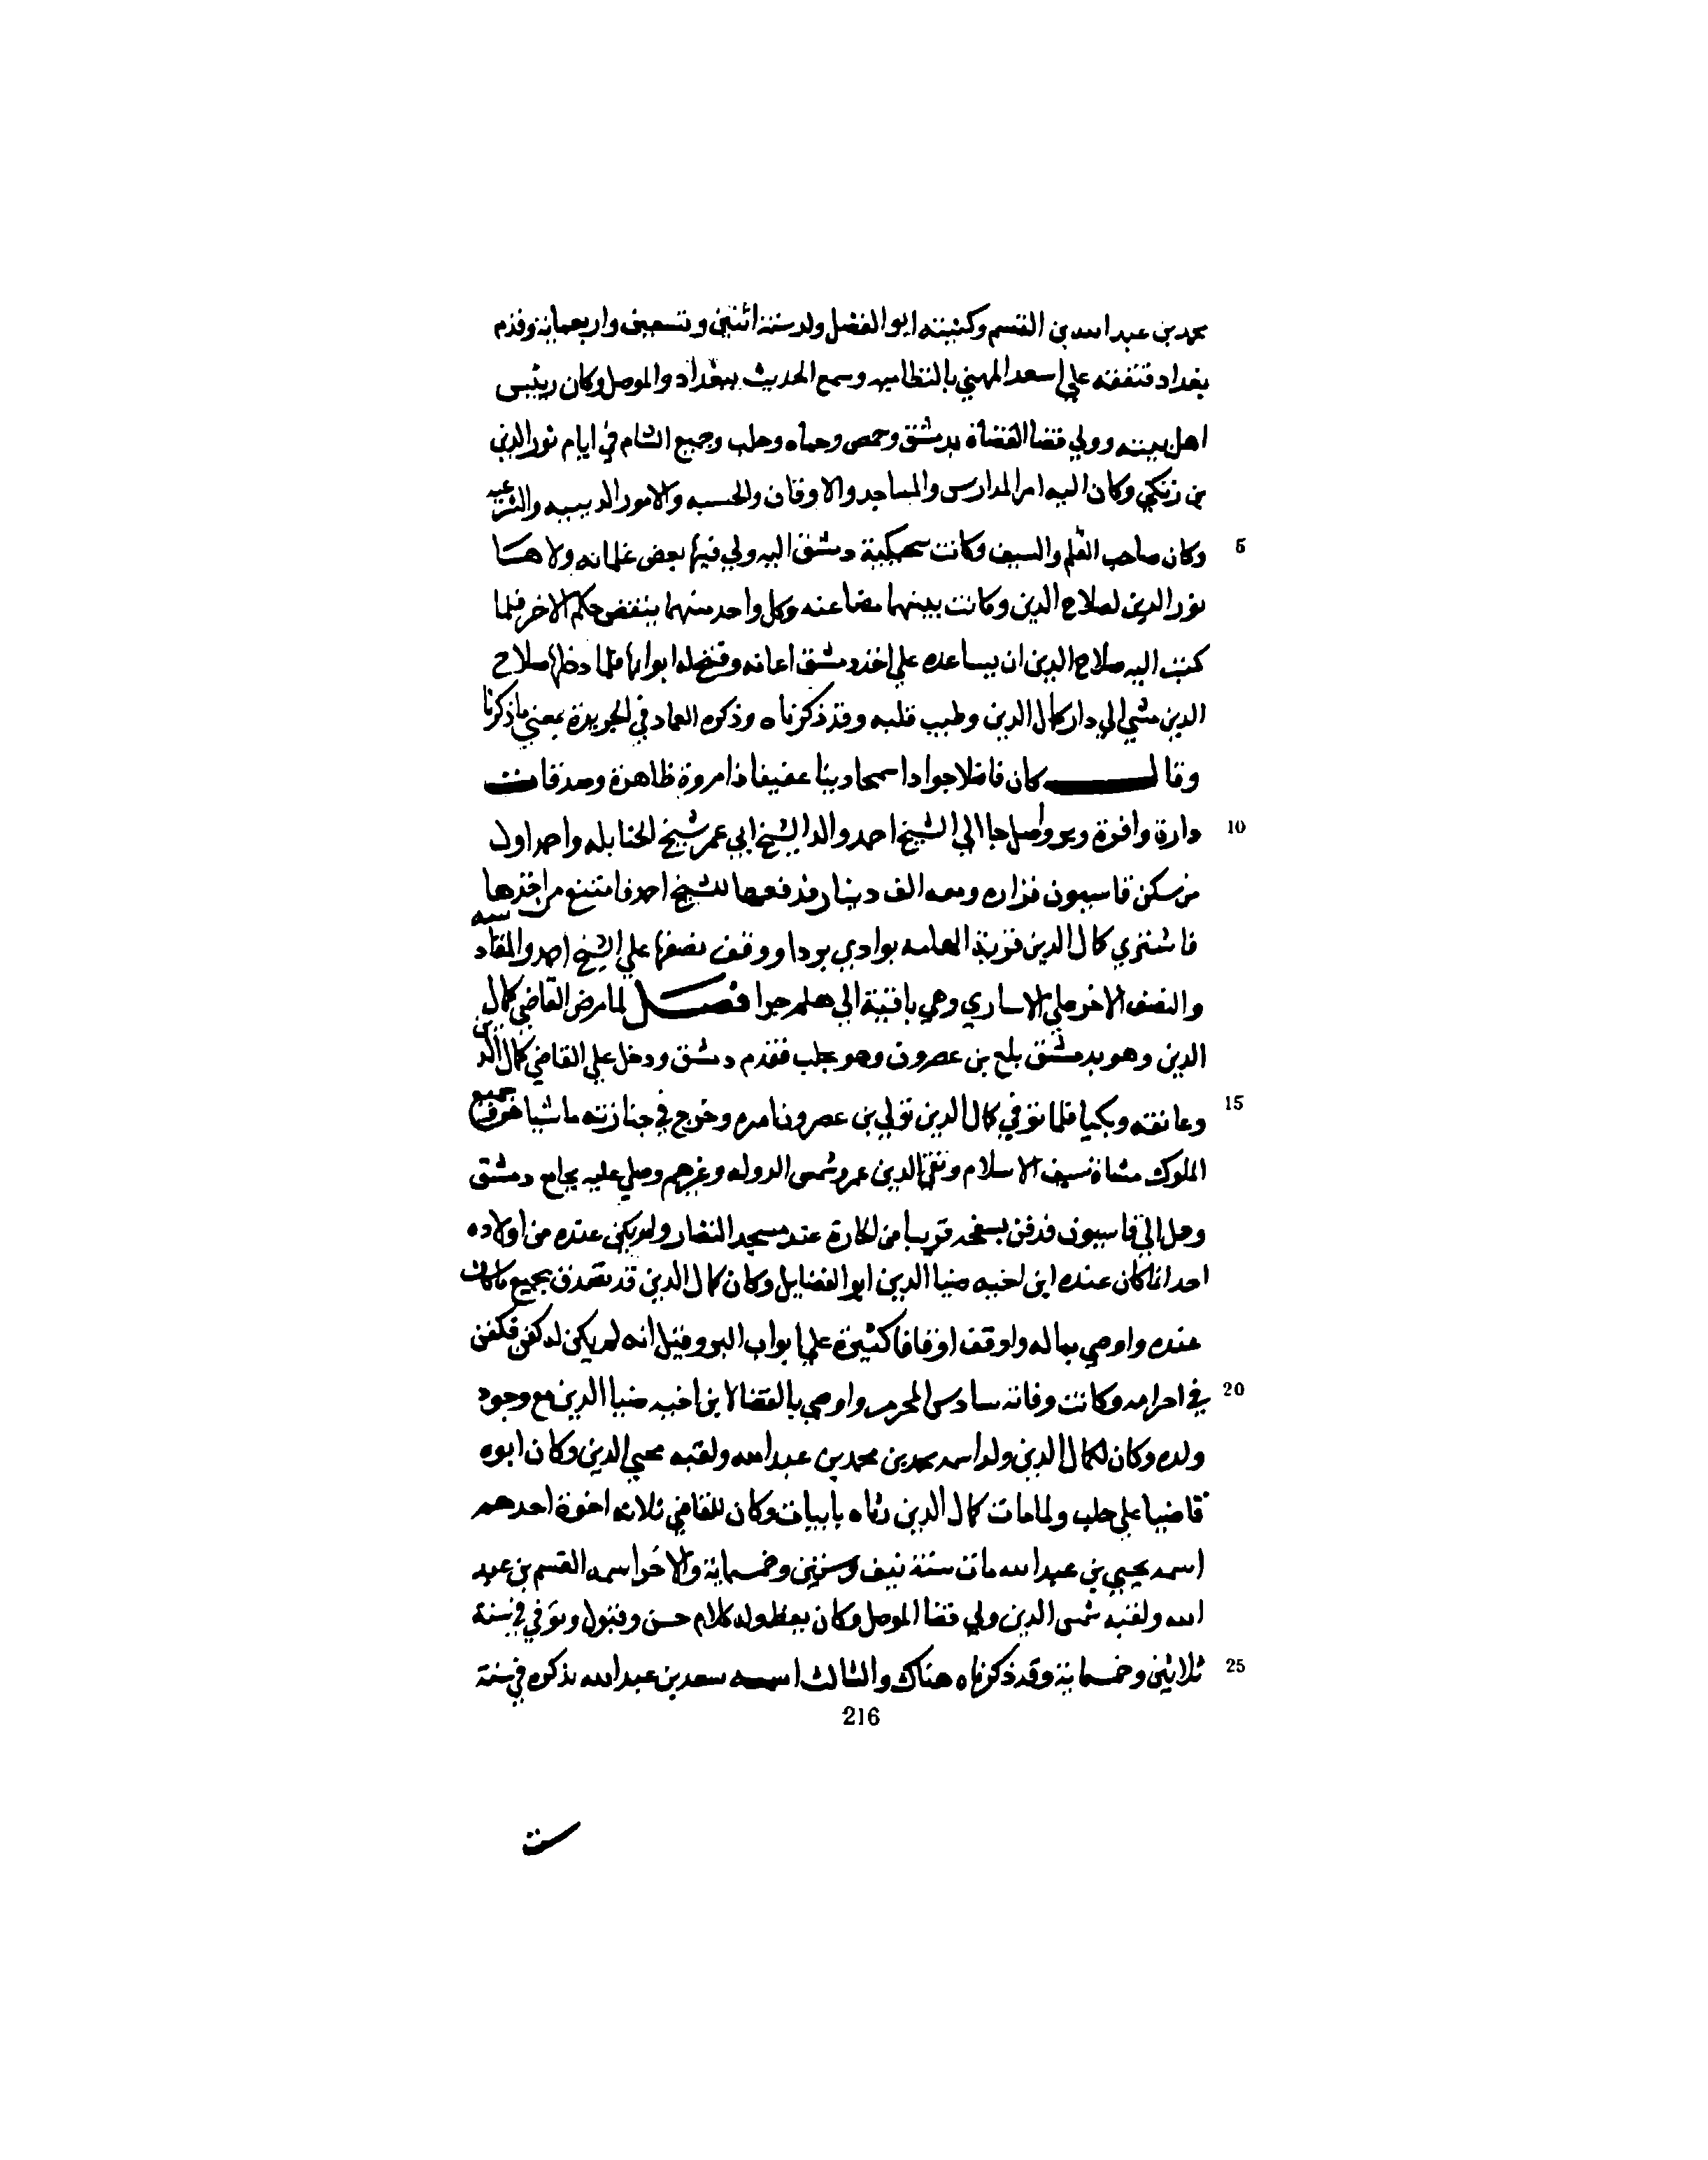 محمد بن عبد الله بن القسم وكنيته ابو الفضل ولد سنة اثنين وتسعين واربعماية وقدم
بغداد فتفقه علي اسعد المهني بالنظاميه وسمع الحديث ببغداد والموصل وكان رييس
اهل بيته وولي قضا القضاة بدمشق وحمص وحماه وحلب وجميع الشام في ايام نور الدين
بن زنكي وكان اليه امر المدارس والمساجد والاوقاف والحسبه والامور الدينيه والشرعيه
5 وكان صاحب القلم والسيف وكانت شحنكية دمشق اليه ولي فيها بعض غلمانه ولاها
نور الدين لصلاح الدين وكانت بينهما مضاغنه وكل واحد منهما ينقض حكم الاخر فلما
كتب اليه صلاح الدين ان يساعده علي اخذ دمشق اعانه وفتح له ابوابها فلما دخلها صلاح
الدين مشي الي دار كمال الدين وطيب قلبه وقد ذكرناه وذكره العماد في الجريدة بمعني ما ذكرنا
وقال كان فاضلا جوادا سمحا دينا عفيفا ذا مروة ظاهرة وصدقات
10 دارة وافرة وبر واصل جا الي الشيخ احمد والد الشيخ ابي عمر شيخ الحنابله واحمد اول
من سكن قاسيون فزاره ومعه الف دينار فدفعها للشيخ احمد فامتنع من اخذها
فاشتري كمال الدين قرية الهامه بوادي بردا ووقف نصفها علي الشيخ احمد والمقادسه
والنصف الاخر علي الاساري وهي باقية الي هلم جرا فصل لما مرض القاضي كمال
الدين وهو بدمشق بلغ بن عصرون وهو بحلب فقدم دمشق ودخل علي القاضي كمال الدين
15 وعانقه وبكيا فلما توفي كمال الدين تولي بن عصرون امره وخرج في جنازته ماشيا جميع
الملوك مشاة سيف الاسلام وتقي الدين عمر وشمس الدوله وغيرهم وصلي عليه بجامع دمشق
وحمل الي قاسيون فدفن بسفحه قريبا من الحارة عند مسجد النضار ولم يكن عنده من اولاده
احد انما كان عنده ابن اخيه ضيا الدين ابو الفضايل وكان كمال الدين قد تصدق بجميع ما كان
عنده واوصي بماله واوقف اوقافا كثيرة علي ابواب البر وقيل انه لم يكن له كفن فكفن
20 في احرامه وكانت وفاته سادس المحرم واوصي بالقضا لابن اخيه ضيا الدين مع وجود
ولده وكان لكمال الدين ولد اسمه محمد بن محمد بن عبد الله ولقبه محيي الدين وكان ابوه
قاضيا علي حلب ولما مات كمال الدين رثاه بابيات وكان للقاضي ثلاثه اخوة احدهم
اسمه يحيي بن عبد الله مات سنة نيف وستين وخمسماية والاخر اسمه القسم بن عبد
الله ولقبه شمس الدين ولي قضا الموصل وكان يعظ وله كلام حسن وقبول وتوفي في سنة
25 ثلاثين وخمسماية وقد ذكرناه هناك والثالث اسمه سعد بن عبد الله نذكره في سنة
216
ست